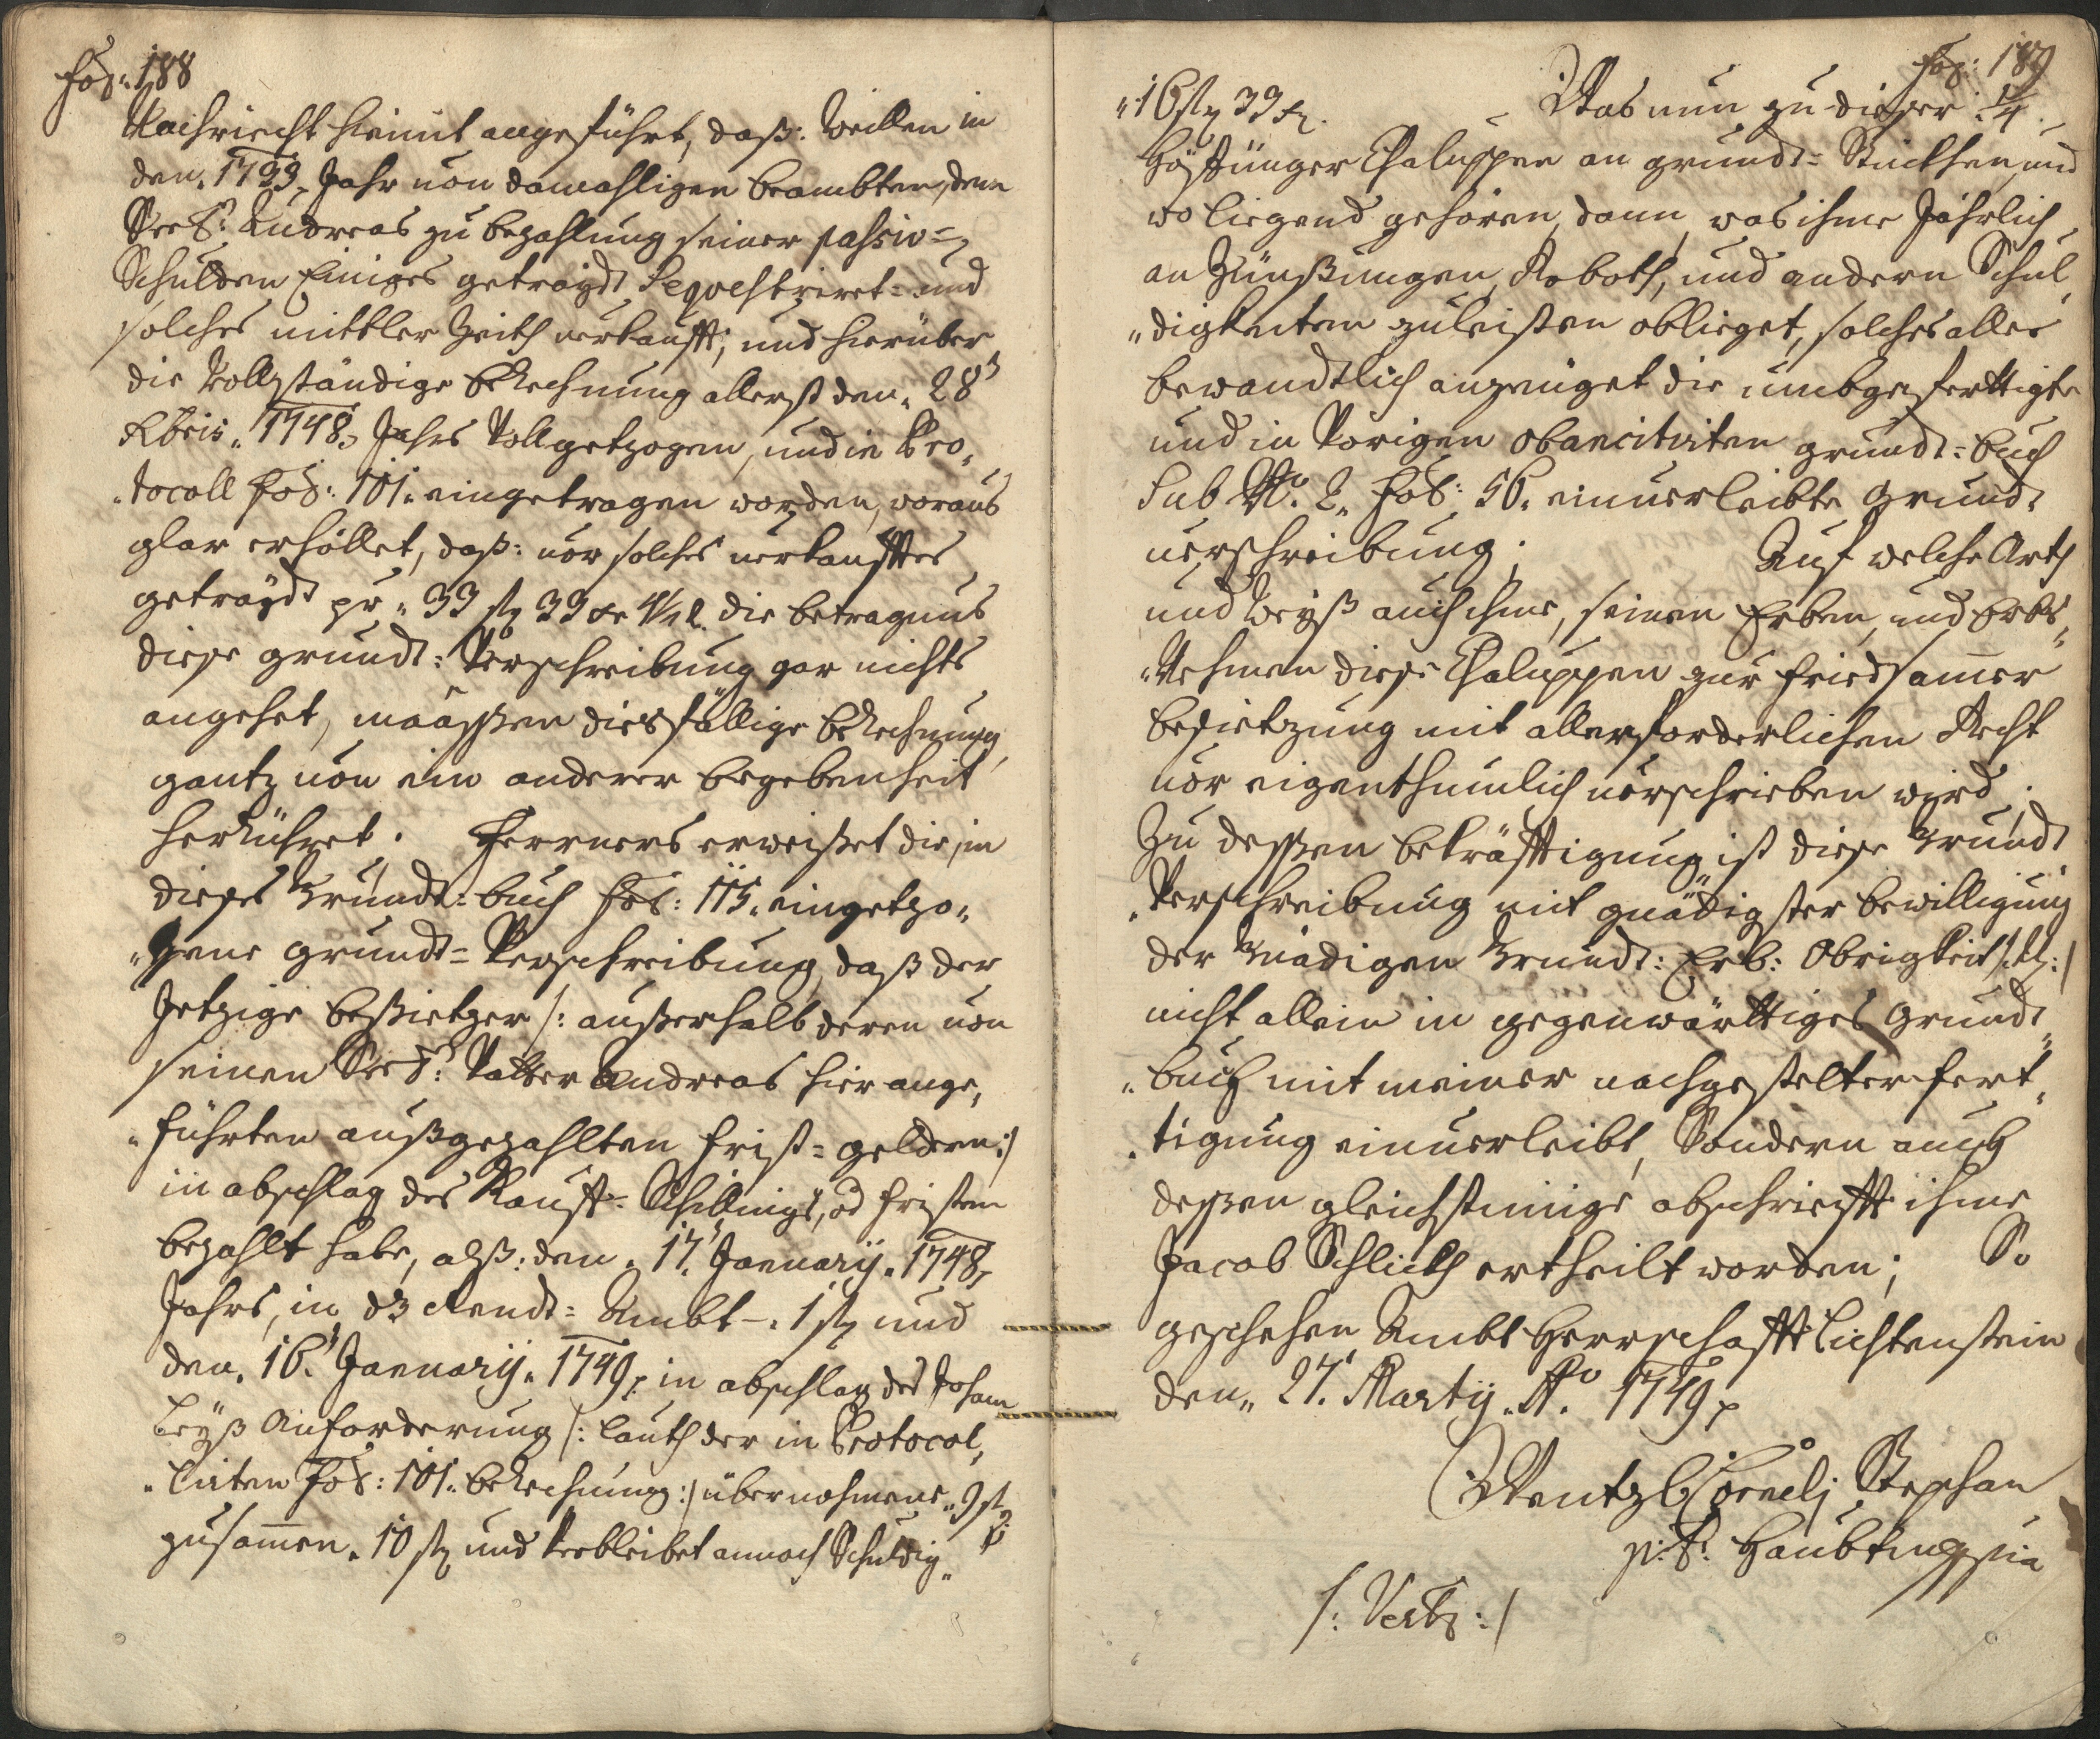 Fol: 188
Nachricht hiemit angeführt, daß: weillen in
den. 1733. Jahr von damahligen beambten, dem
Seel: Andreas zu bezahlung seiner passiv=
Schulden Einiges getraydt Sequestriret= und
solches mittler Zeith verkaufft; und hierüber
die Vollständige berechnung allerst den. 28t
Xbris. 1748. Jahrs Vollgetzogen, und in Pro,
„tocoll Fol: 101. eingetragen worden, woraus
glar erhöllet, daß: vor solches verkaufftes
getraydt pr. 33 ß 39 xr 4½ d. die betragnus
diese grundt: Verschreibung gar nichts
angehet, maaßßen diesfällige berechnung
gantz von ein anderer begebenheit
herrühret. Ferrners erweißet die, in
dießes Grundt: buch Fol: 115. eingetzo„
„gene grundt= Verschreibung, daß der
Jetzige beßietzer /: außerhalb deren von
seinen Seel: Vatter Andreas hier ange,
„führten außgezahlten frist= geldern :/
in abschlag des Kauff= Schillings, od fristen
bezahlt habe, alß: den. 17t January. 1748.
Jahrs, in dß Rendt= Ambt –. 1 ß und
den. 16t January. 1749. in abschlag des Johann
Leyß Anforderung /: lauth der in Protocol,
„lirten Fol: 101. berechnung :/ übernohmene. 9 ß
zusammen. 10 ß und verbleibet annoch Schuldig„
Fol: 189
„16 ß 39 x. Was nun zu dießer ¼.
höfftünger Chaluppen an grundt= Stückhen, und
wo liegend gehören, dann was ihme Jährlich
an Zünßungen, Roboth, und andern Schul,
„digkeiten zuleisten oblieget, solches alles
bewandtlich anzeüget die umbgefertigte
und in Vorigen obancitirten grundt= buch
Sub No. 2. Fol: 56. einverleibte Grundt
verschreibung; Auf welche Arth
und Weyß auch ihme, seinen Erben, und Erbs„
„Nehmen diese Chaluppen zur friedsamer
besietzung mit allerforderlichen Recht
vor eigenthumlich vorschrieben wird.
Zu deßßen bekräfftigung ist diese Grundt
„Verschreibung mit gnädigster bewilligung
der Gnädigen Grundt: Erb: Obrigkeit /: :/
nicht allein in gegenwärttiges Grundt„
„buch mit meiner nachgestelter fert„
„tigung einverleibt, Sondern auch
deßßen gleichstimige abschriefft ihme
Jacob Schlieth ertheilt worden; So
geschehen Ambt Herrschafft Lichtenstein
den„ 27t Martij. Ao. 1749.
Wentzl Cornelj Stephan
p: t: Haubtmgßin
/: Verte :/